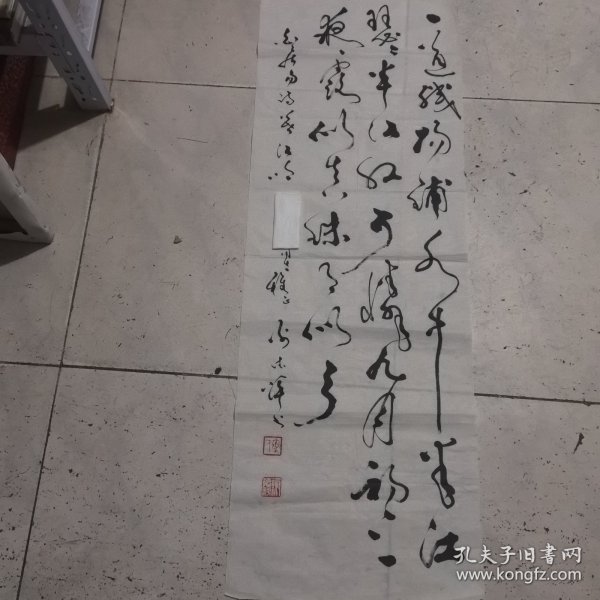 一道殘陽鋪水中半江
瑟々半江红可憐九月初三
夜露似真珠月似弓
白居易诗暮江吟
雅正
孔夫子旧书网
www.kongfz.com